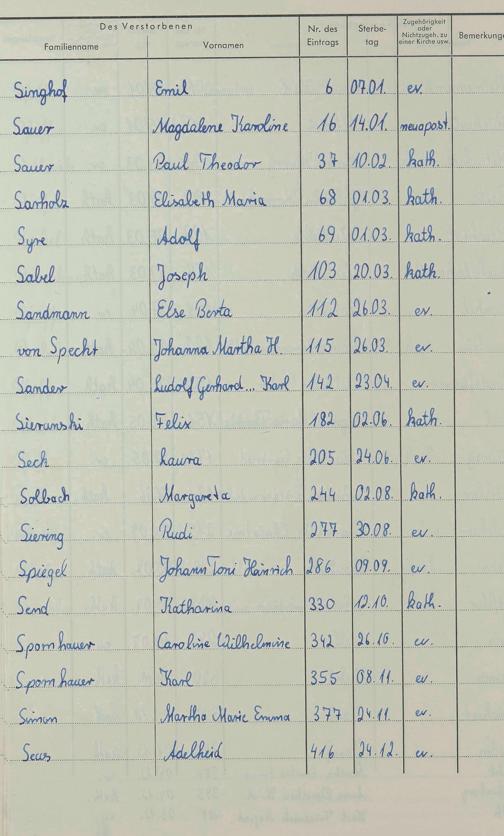 Des Verstorbenen
Familienname Vornamen Nr. des Eintrags Sterbe-tag Zugehörigkeit oder Nichtzugeh. zu einer Kirche usw. Bemerkunge
Singhof Emil 6 07.01. ev.
Sauer Magdalene Karoline 16 14.01. neuapost.
Sauer Paul Theodor 37 10.02. kath.
Sarholz Elisabeth Maria 68 01.03. kath.
Syre Adolf 69 01.03. kath.
Sabel Joseph 103 20.03. kath.
Sandmann Else Berta 112 26.03. ev.
von Specht Johanna Martha H. 115 26.03. ev.
Sander Rudolf Gerhard... Karl 142 23.04. ev.
Sieranski Felix 182 02.06. kath.
Sech Laura 205 24.06. ev.
Solbach Margareta 244 02.08. kath.
Siering Rudi 277 30.08. ev.
Spiegel Johann Toni Heinrich 286 09.09. ev.
Send Katharina 330 12.10. kath.
Spornhauer Caroline Wilhelmine 342 26.10. ev.
Spornhauer Karl 355 08.11. ev.
Simon Martha Marie Emma 377 24.11. ev.
Seus Adelheid 416 24.12. ev.